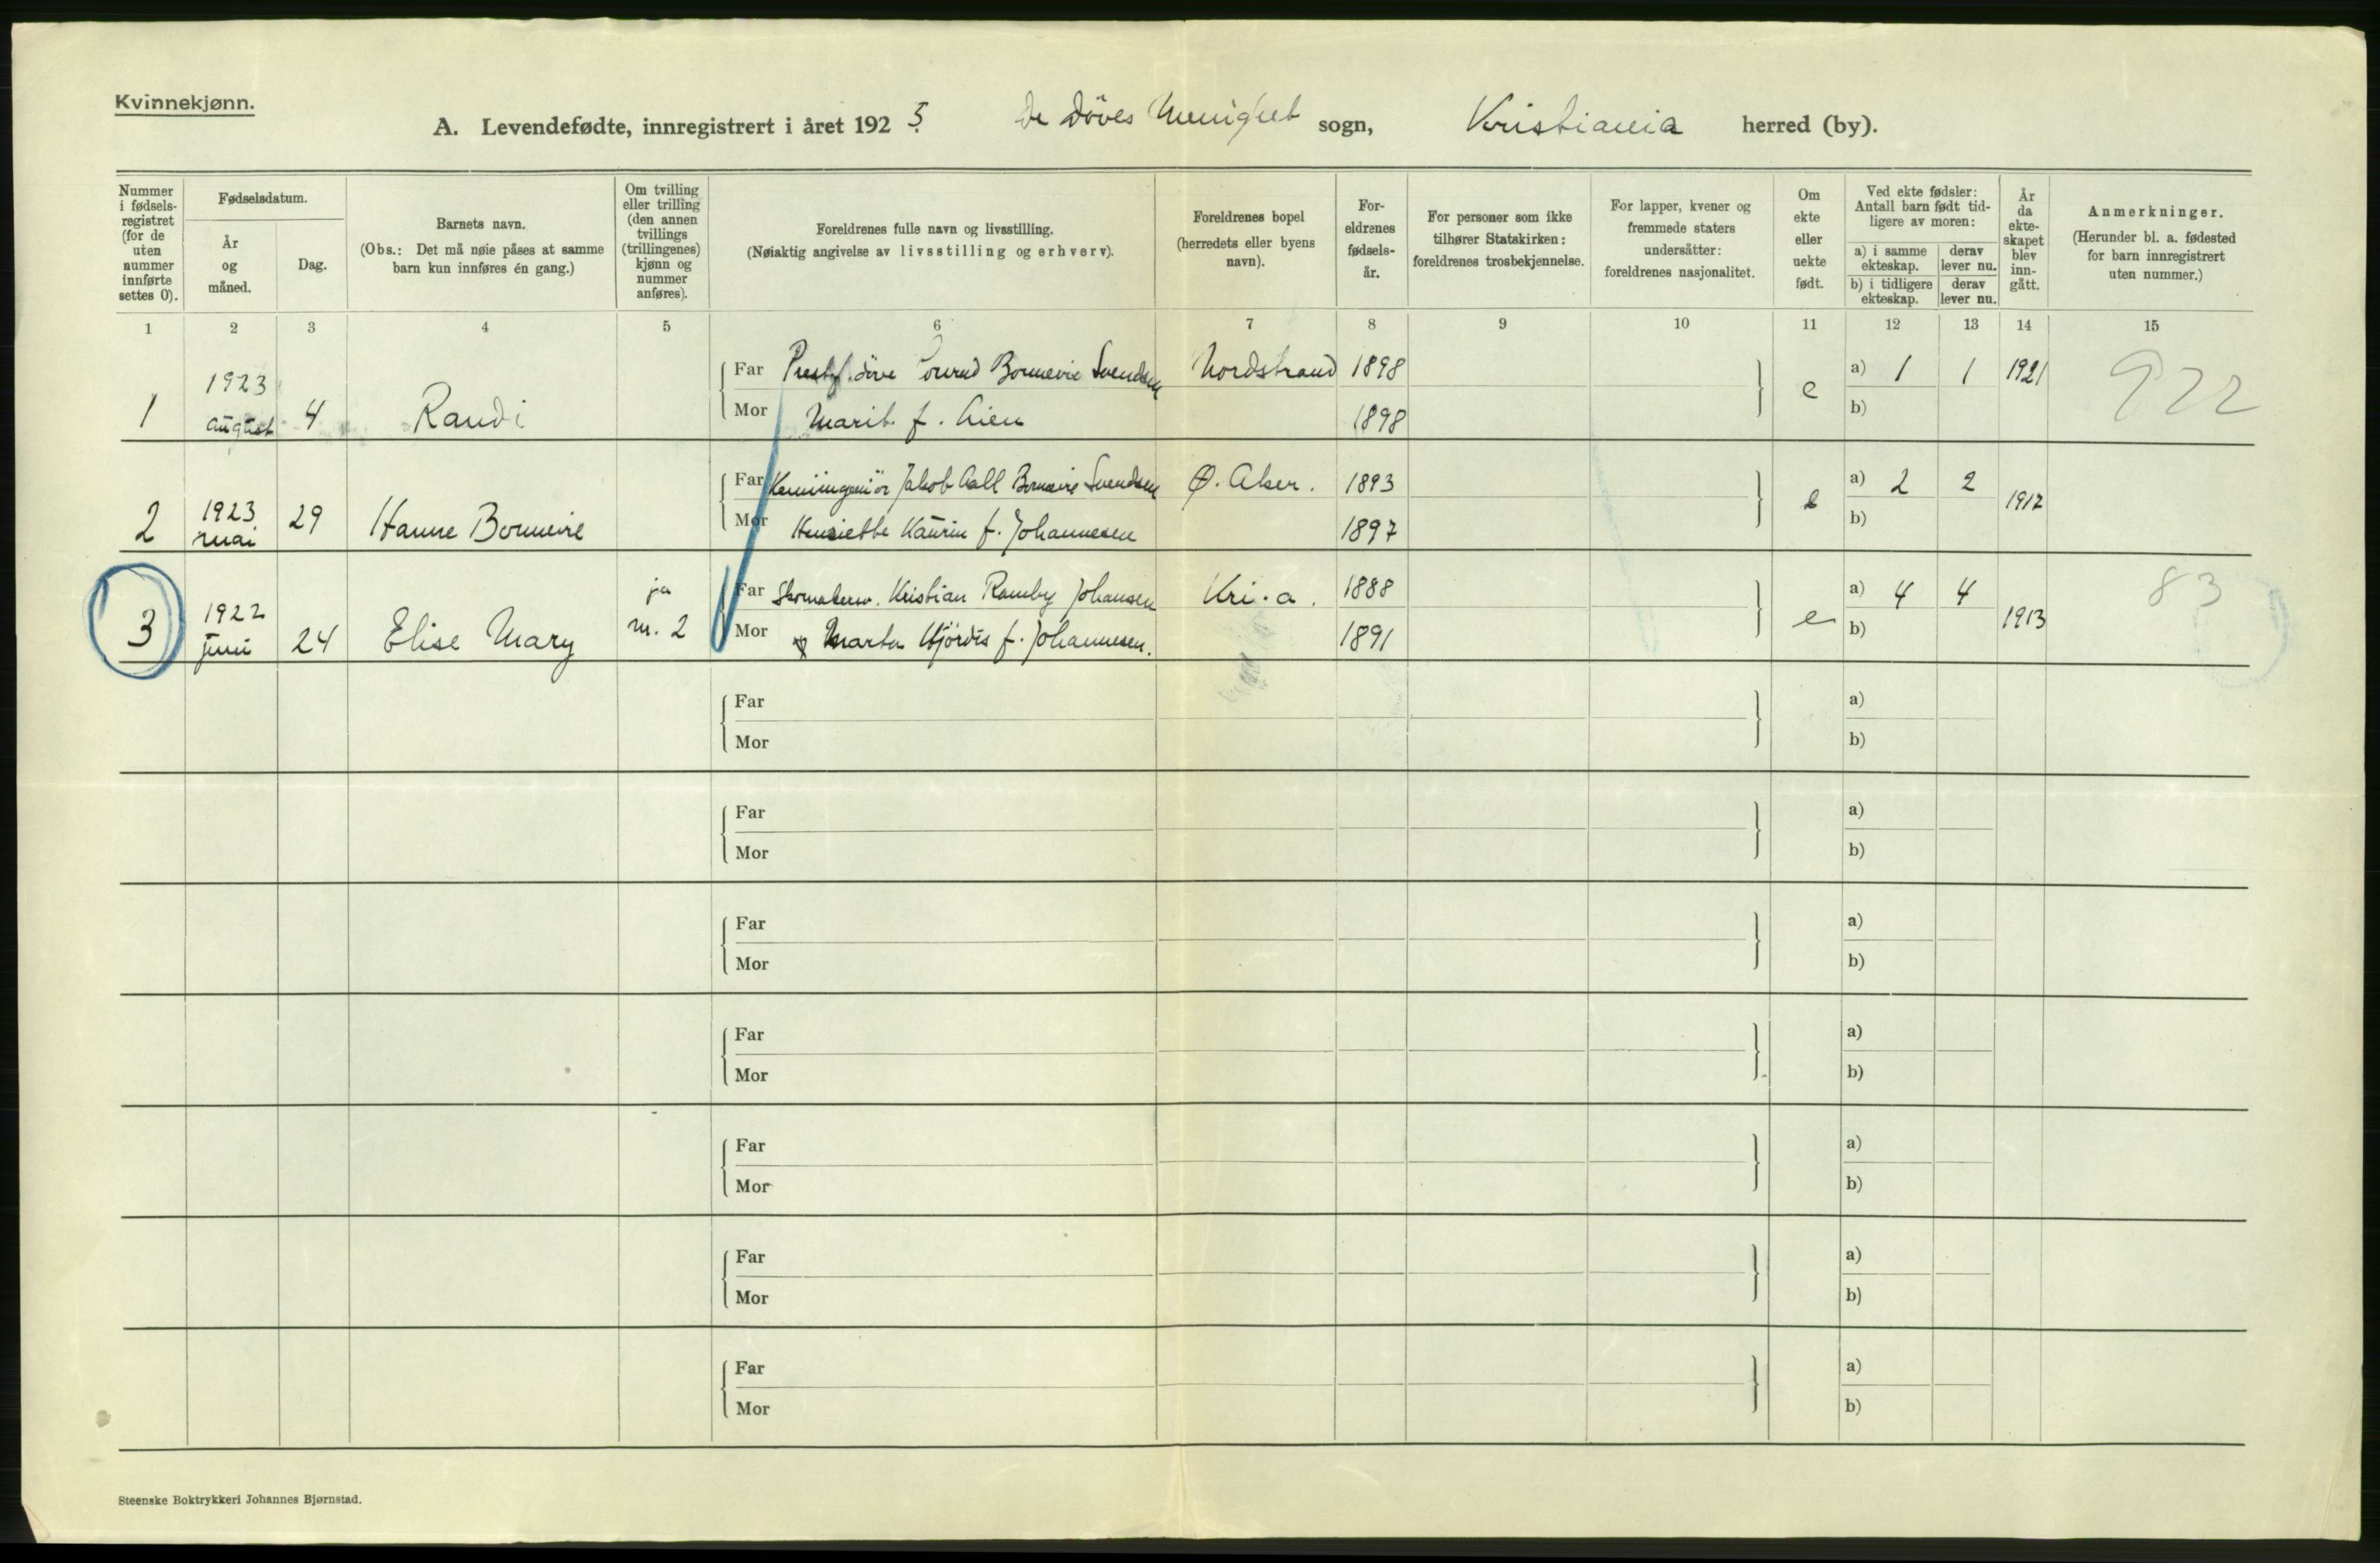 Kvinnekjønn.
A. Levendefødte, innregistrert i året 1923 De Döves Menighet sogn, Kristiania herred (by).
Nummer i fødsels-registret (for de uten nummer innførte settes 0).
Fødselsdatum.
År og måned.
Dag.
Barnets navn.
(Obs.: Det må nøie påses at samme barn kun innføres én gang.)
Om tvilling eller trilling (den annen tvillings (trillingenes) kjønn og nummer anføres).
Foreldrenes fulle navn og livsstilling.
(Nøiaktig angivelse av livsstilling og erhverv).
Foreldrenes bopel (herredets eller byens navn).
For-eldrenes fødsels-år.
For personer som ikke tilhører Statskirken: foreldrenes trosbekjennelse.
For lapper, kvener og fremmede staters undersåtter: foreldrenes nasjonalitet.
Om ekte eller uekte født.
Ved ekte fødsler: Antall barn født tid-ligere av moren:
a) i samme ekteskap.
derav lever nu.
b) i tidligere ekteskap.
derav lever nu.
År da ekte-skapet blev inn-gått.
Anmerkninger.
(Herunder bl. a. fødested for barn innregistrert uten nummer.)
1 2 3 4 5 6 7 8 9 10 11 12 13 14 15
1 1923 august 4 Randi
Far Prest f. döve Conrad Bonnevie Svendsen Nordstrand 1898 e a) 1 1 1921 922
Mor Marit f. 1898 b)
2 1923 mai 29 Hanne Bonnevie
Far Kemiingeniör Jakob Aall Bonnevie Svendsen Ø. Aker. 1893 e a) 2 2 1917
Mor Henriette Kaurin f. Johannesen 1897 b)
3 1922 juni 24 Elise Mary ja nr. 2
Far Skomakersv. Kristian Ramby Johansen Kri.a. 1888 e a) 4 4 1913 83
Mor Marta Hjördis f. Johannesen. 1891 b)
Far a)
Mor b)
Far a)
Mor b)
Far a)
Mor b)
Far a)
Mor b)
Far a)
Mor b)
Far a)
Mor b)
Far a)
Mor b)
Steenske Boktrykkeri Johannes Bjørnstad.